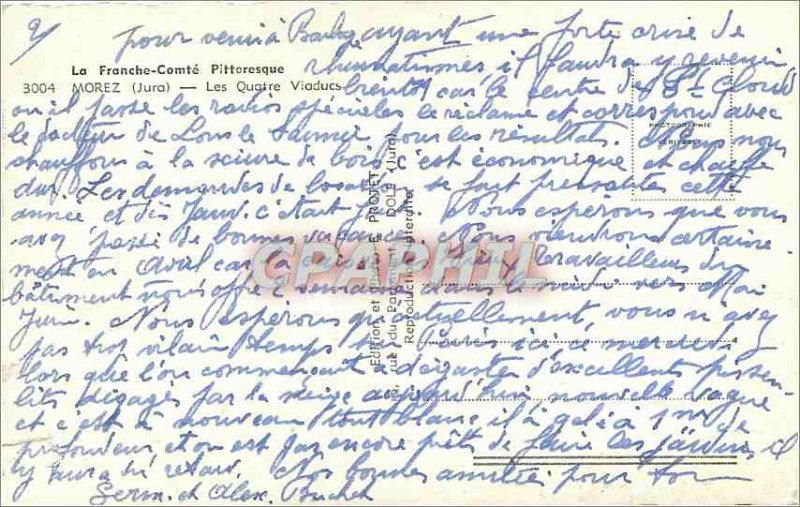 2/
pour venir à Ayant une forte crise de
La Franche-Comté Pittoresque
rhumatismes il faudra y revenir
3004 MOREZ (Jura) — Les Quatre Viaducs
bientôt car le centre de St Cloud
où il passe les radios spéciales le réclame et correspond avec
le docteur de Lons le Saunier pour les résultats. Nous nous
chauffons à la sciure de bois, c'est économique et chauffe
dur. Les demandes de se font pressantes cette
année et dès Janv. c'était Nous espérons que vous
avez passé de bonnes vacances. Nous viendrons certaine
ment en Avril car la travailleurs du
bâtiment nous offre semaines dans le midi vers Mai
Juin. Nous espérons qu'actuellement, vous n'avez
pas trop vilain temps sur Paris ici ce mercredi
alors que l'on commençait à déguster d'excellents pissen-
lits dégagés par la neige aujourd'hui nouvelle vague
et c'est à nouveau tout blanc il a gelé à 1 m de
profondeur, et on est pas encore prêts de faire les jardins, il
y aura du retard. Nos bonnes amitiés pour tous
Germ. et Alex. Buchet
PHOTOGRAPHIE
VÉRITABLE
Edition et Photo E. PROTET
rue du Parlement, DOLE (Jura)
Reproduction interdite
CPAPHIL